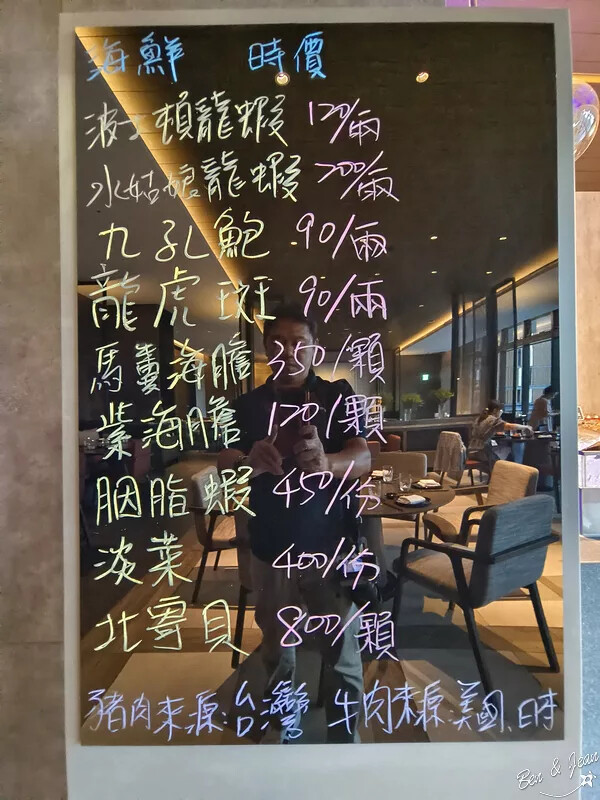 海鮮 時價
波士頓龍蝦 120/兩
水姑娘龍蝦 200/兩
九孔鮑 90/兩
龍虎斑 90/兩
馬糞海膽 350/顆
紫海膽 120/顆
胭脂蝦 450/份
淡菜 400/份
北寄貝 800/顆
豬肉來源:台灣 牛肉來源:美國、日本
Ben & Jean